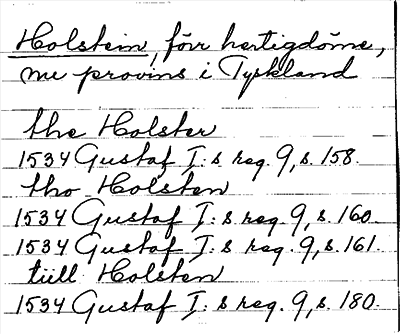 Holstein, förr hertigdöme,
nu provins i Tyskland
the Holster
1534 Gustaf I:s reg. 9, s. 158.
tho Holsten
1534 Gustaf I:s reg. 9, s. 160.
1534 Gustaf I:s reg. 9, s. 161.
tüll Holsten
1534 Gustaf I:s reg. 9, s. 180.